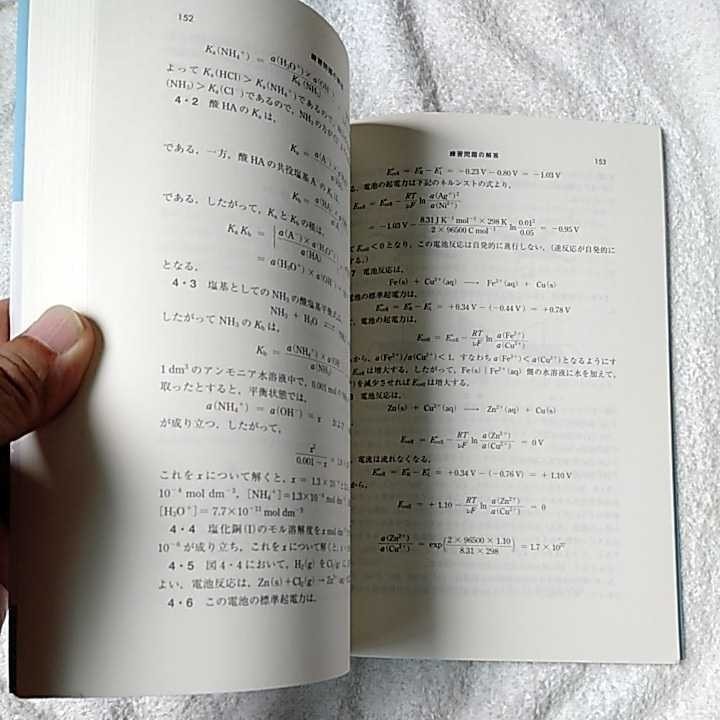 152
K_a(NH₄⁺) = a(H₃O⁺)×a(OH⁻) / K_b(NH₃)
よって K_a(HCl) > K_a(NH₄⁺) であるので,
(NH₃) > K_b(Cl⁻) であるので, NH₃の方が
4・2 酸 HA の K_a は,
K_a = a(A⁻)×
である. 一方, 酸 HA の共役塩基 A⁻の K_b は,
K_b = a(HA)
である. したがって, K_aとK_bの積は,
K_a K_b = a(A⁻)×a(H₃O⁺) / a(HA)
= a(H₃O⁺) × a(OH⁻)
となる.
4・3 塩基としての NH₃ の酸塩基平衡式は,
NH₃ + H₂O ⇌
したがって NH₃ の K_b は,
K_b = a(NH₄⁺)×a(OH⁻) / a(NH₃)
1 dm³ のアンモニア水溶液中で, 0.001 mol の
取ったとすると, 平衡状態では,
a(NH₄⁺) = a(OH⁻) = x および
が成り立つ. したがって,
x² / 0.001 − x
これを x について解くと, x = 1.3×10⁻⁴
10⁻⁴ mol dm⁻³, [NH₄⁺]=1.3×10⁻⁴ mol dm
[H₃O⁺]=7.7×10⁻¹¹ mol dm⁻³
4・4 塩化銅(I)のモル溶解度を x mol dm⁻³
10⁻⁶ が成り立ち, これを x について解くと,
4・5 図 4・4 において, H₂(g) を Cl₂(g) に
よい. 電池反応は, Zn(s)+Cl₂(g)→Zn²⁺
4・6 この電池の標準起電力は,
練習問題の解答
153
E°cell = E°R − E°L = −0.23 V − 0.80 V = −1.03 V
る. 電池の起電力は下記のネルンストの式より,
Ecell = E°cell − RT/νF ln a(Ag⁺)² / a(Ni²⁺)
= −1.03 V − 8.31 J K⁻¹ mol⁻¹ × 298 K / 2 × 96500 C mol⁻¹ ln 0.01² / 0.05 = −0.95 V
て Ecell < 0 となり, この電池反応は自発的に進行しない. (逆反応が自発的に
する.)
7 電池反応は,
Fe(s) + Cu²⁺(aq) ⟶ Fe²⁺(aq) + Cu(s)
電池の標準起電力は,
E°cell = E°R − E°L = +0.34 V − (−0.44 V) = +0.78 V
て, 電池の起電力は,
Ecell = E°cell − RT/νF ln a(Fe²⁺) / a(Cu²⁺)
から, a(Fe²⁺)/a(Cu²⁺) < 1, すなわち a(Fe²⁺) < a(Cu²⁺) となるようにす
Ecell は増大する. したがって, Fe(s)｜Fe²⁺(aq) 側の水溶液に水を加えて,
) を減少させれば Ecell は増大する.
8 電池反応は,
Zn(s) + Cu²⁺(aq) ⟶ Zn²⁺(aq) + Cu(s)
Ecell = E°cell − RT/νF ln a(Zn²⁺) / a(Cu²⁺) = 0 V
, 電流は流れなくなる.
E°cell = E°R − E°L = +0.34 V − (−0.76 V) = + 1.10 V
から,
Ecell = + 1.10 − RT/νF ln a(Zn²⁺) / a(Cu²⁺) = 0
a(Zn²⁺) / a(Cu²⁺) = exp(2 × 96500 × 1.10 / 8.31 × 298) = 1.7 × 10³⁷